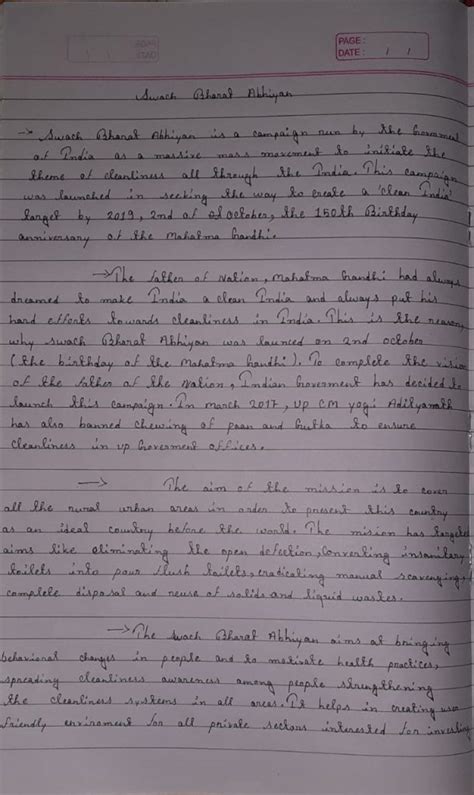 PAGE :
DATE : / /
Swach Bharat Abhiyan
→ Swach Bharat Abhiyan is a campaign run by the Government
of India as a massive mass movement to initiate the
theme of cleanliness all through the India. This campaign
was launched in seeking the way to create a 'clean India'
target by 2019, 2nd of October, the 150th Birthday
anniversary of the Mahatma Gandhi.
→ The father of Nation, Mahatma Gandhi had always
dreamed to make India a clean India and always put his
hard efforts towards cleanliness in India. This is the reason
why swach Bharat Abhiyan was launced on 2nd october
(the birthday of the Mahatma Gandhi). To complete the vision
of the father of the Nation, Indian Goverment has decided to
launch this campaign. In March 2017, UP CM yogi Adityanath
has also banned chewing of paan and Gutka to ensure
cleanliness in up Goverment offices.
→ The aim of the mission is to cover
all the rural urban areas in order to present this country
as an ideal country before the world. The mision has targeted
aims like eliminating the open defection, Converting insanitary
toilets into pour flush toilets, eradicating manual scavenging,
complete disposal and reuse of solids and liquid wastes.
→ The swach Bharat Abhiyan aims at bringing
behavioral changes in people and to motivate health practices,
spreading cleanliness awareness among people strengthening
the cleanliness systems in all areas. It helps in creating user
friendly enviroment for all private sectors interested for investing